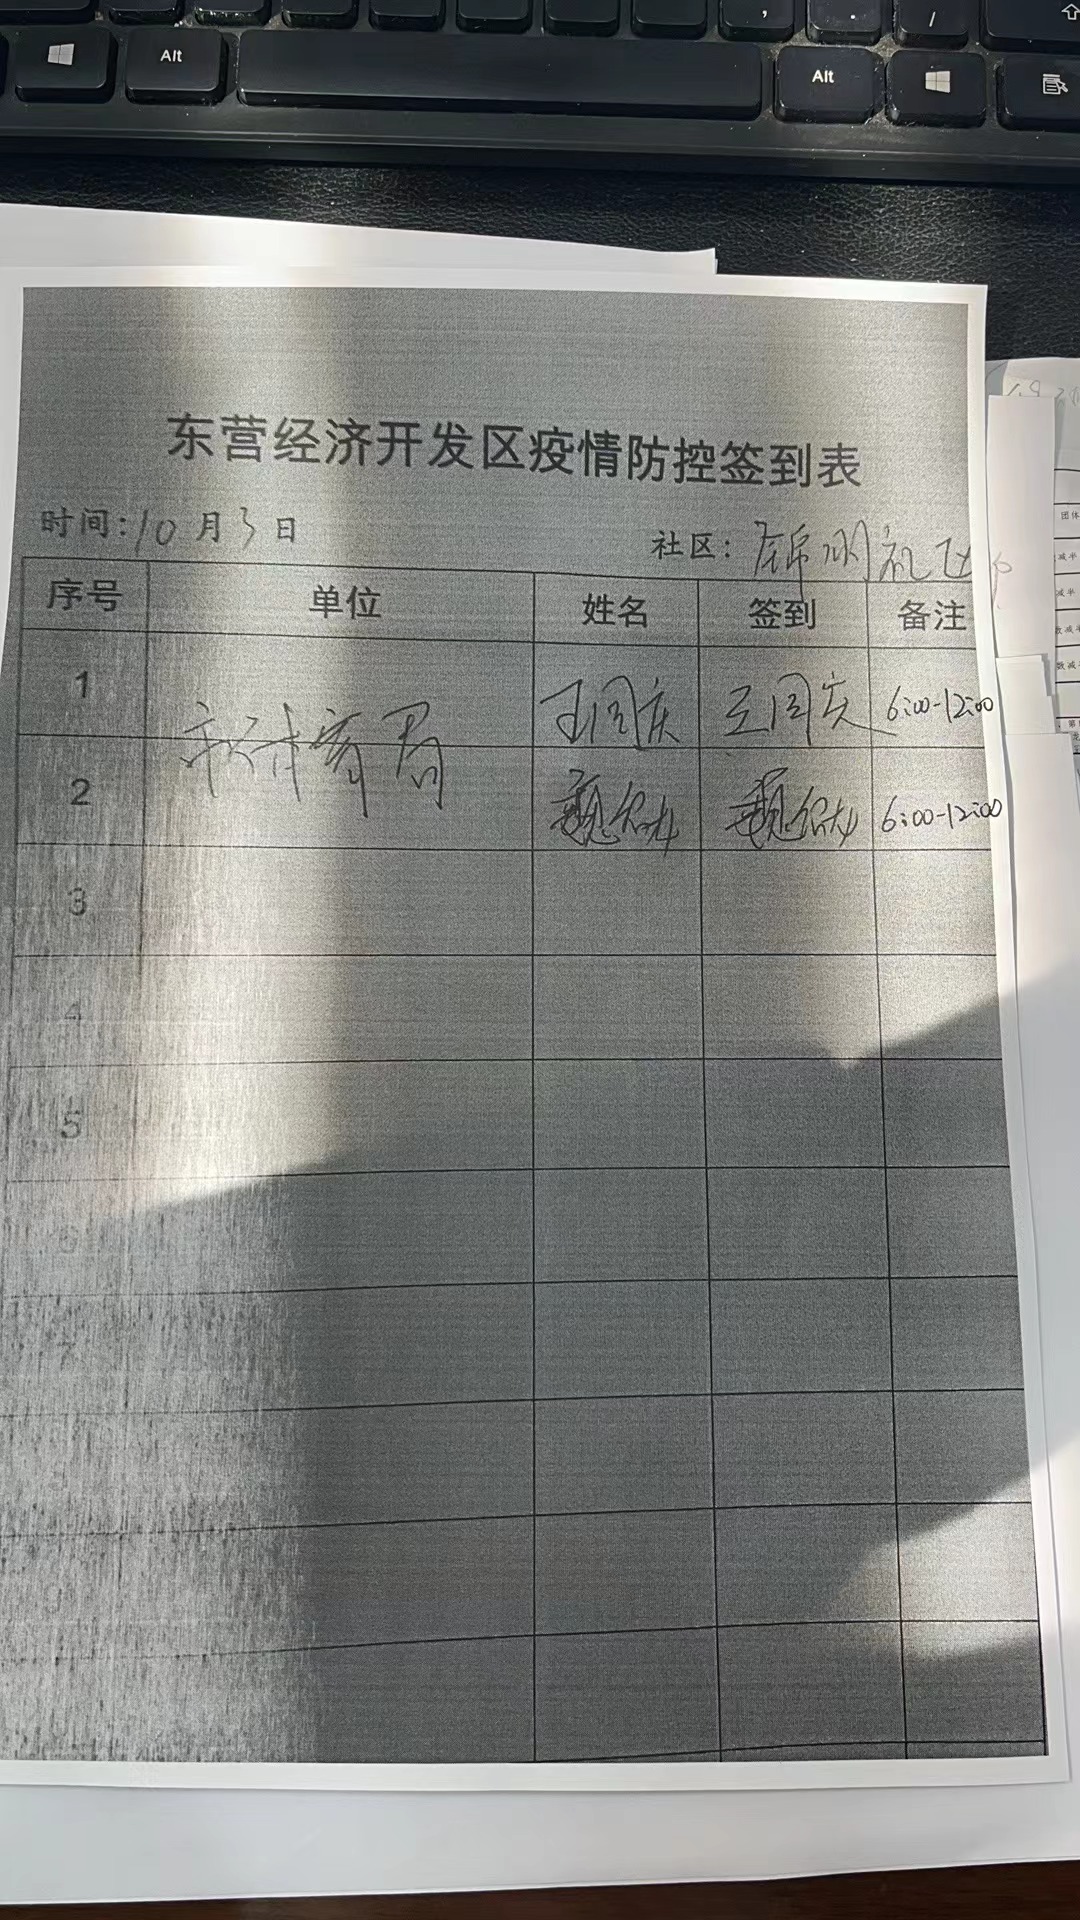 Alt
Alt
,
.
/
东营经济开发区疫情防控签到表
时间:10月3日
社区:
序号 单位 姓名 签到 备注
1 王国庆 王国庆 6:00-12:00
2 魏 魏 6:00-12:00
3
4
5
6
7
团体
减半
减半
数减半
数减